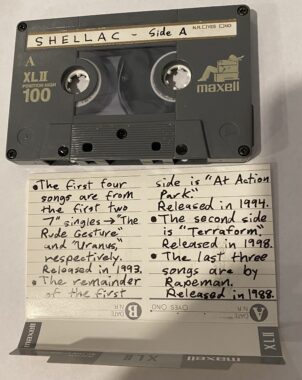 SHELLAC - Side A
N.R. ○YES ○NO
A
XLII
POSITION·HIGH
100
maxell
• The first four
songs are from
the first two
7" singles → "The
Rude Gesture"
and "Uranus,"
respectively.
Released in 1993.
• The remainder
of the first
side is "At Action
Park."
Released in 1994.
• The second side
is "Terraform"
Released in 1998.
• The last three
songs are by
Rapeman.
Released in 1988.
B DATE
N.R. ○YES ○NO
A DATE
N.R. ○YES ○NO
XLII
maxell
XLII
maxell